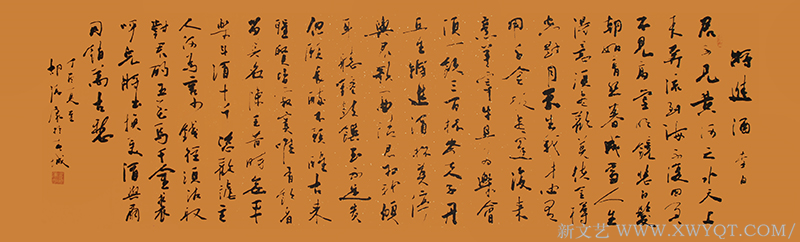 將進酒 李白
君不見黃河之水天上
來奔流到海不復回君
不見高堂明鏡悲白髮
朝如青絲暮成雪人生
得意須盡歡莫使金樽
空對月天生我才必有
用千金散盡還復來
烹羊宰牛且為樂會
須一飲三百杯岑夫子丹
丘生將進酒杯莫停
與君歌一曲請君為我傾
耳聽鐘鼓饌玉不足貴
但願長醉不願醒古來
聖賢皆寂寞唯有飲者
留其名陳王昔時宴平
樂斗酒十千恣歡謔主
人何為言少錢徑須沽取
對君酌五花馬千金裘
呼兒將出換美酒與爾
同銷萬古愁
新文艺 WWW.XWYQT.COM/